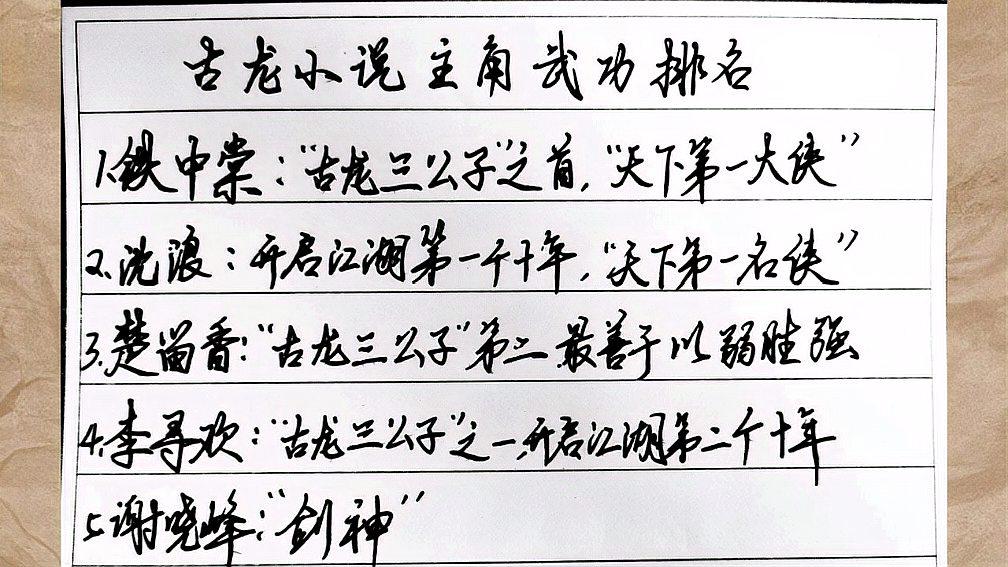 古龙小说主角武功排名
1.铁中棠:“古龙三公子”之首,“天下第一大侠”
2.沈浪:开启江湖第一个十年,“天下第一名侠”
3.楚留香:“古龙三公子”第二.最善于以弱胜强
4.李寻欢:“古龙三公子”之一,开启江湖第二个十年
5.谢晓峰:“剑神”